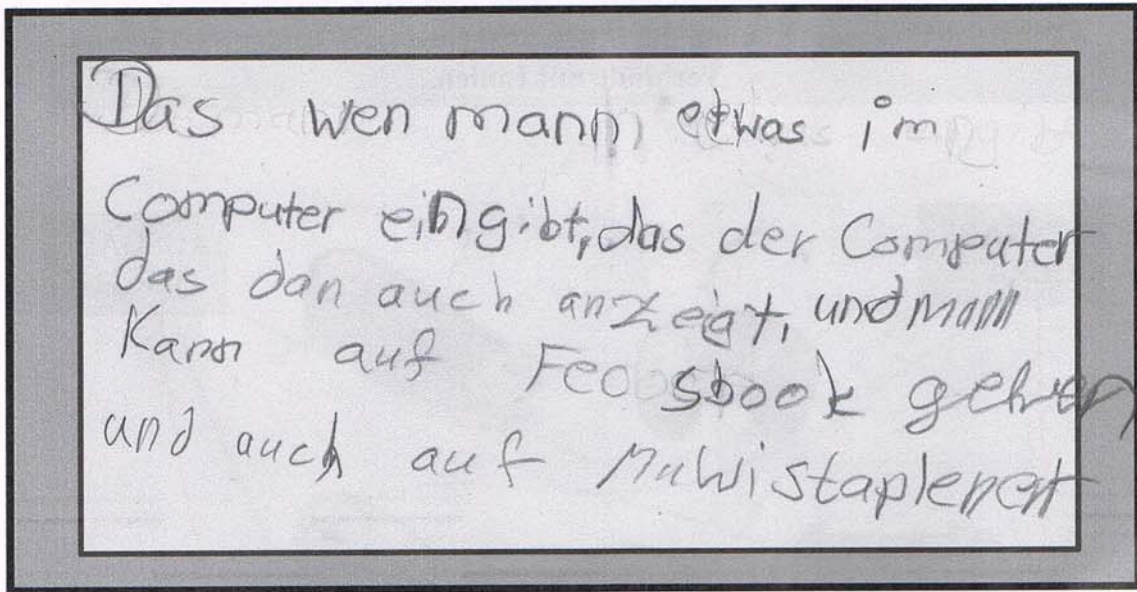 Das wen mann etwas im
Computer eingibt, das der Computer
das dan auch anzeigt, und mann
Kann auf sbook gehen
und auch auf